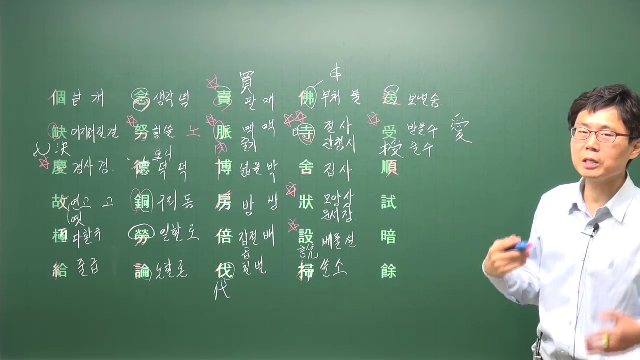 買 中
個 낱 개 念 생각 념 賣 팔 매 佛 부처 불 送 보낼 송
缺 이지러질 결 努 힘쓸 노 脈 맥 맥 寺 절 사 受 받을 수 愛
줄기 관청 시 授 줄 수
決
慶 경사 경 德 덕 덕 博 넓을 박 舍 집 사 順
故 연고 고 銅 구리 동 房 방 방 狀 모양 상 試
옛 문서 장
極 다할 극 勞 일할 로 倍 갑절 배 設 베풀 설 暗
說
給 줄 급 論 논할 론 伐 칠 벌 掃 쓸 소 餘
代